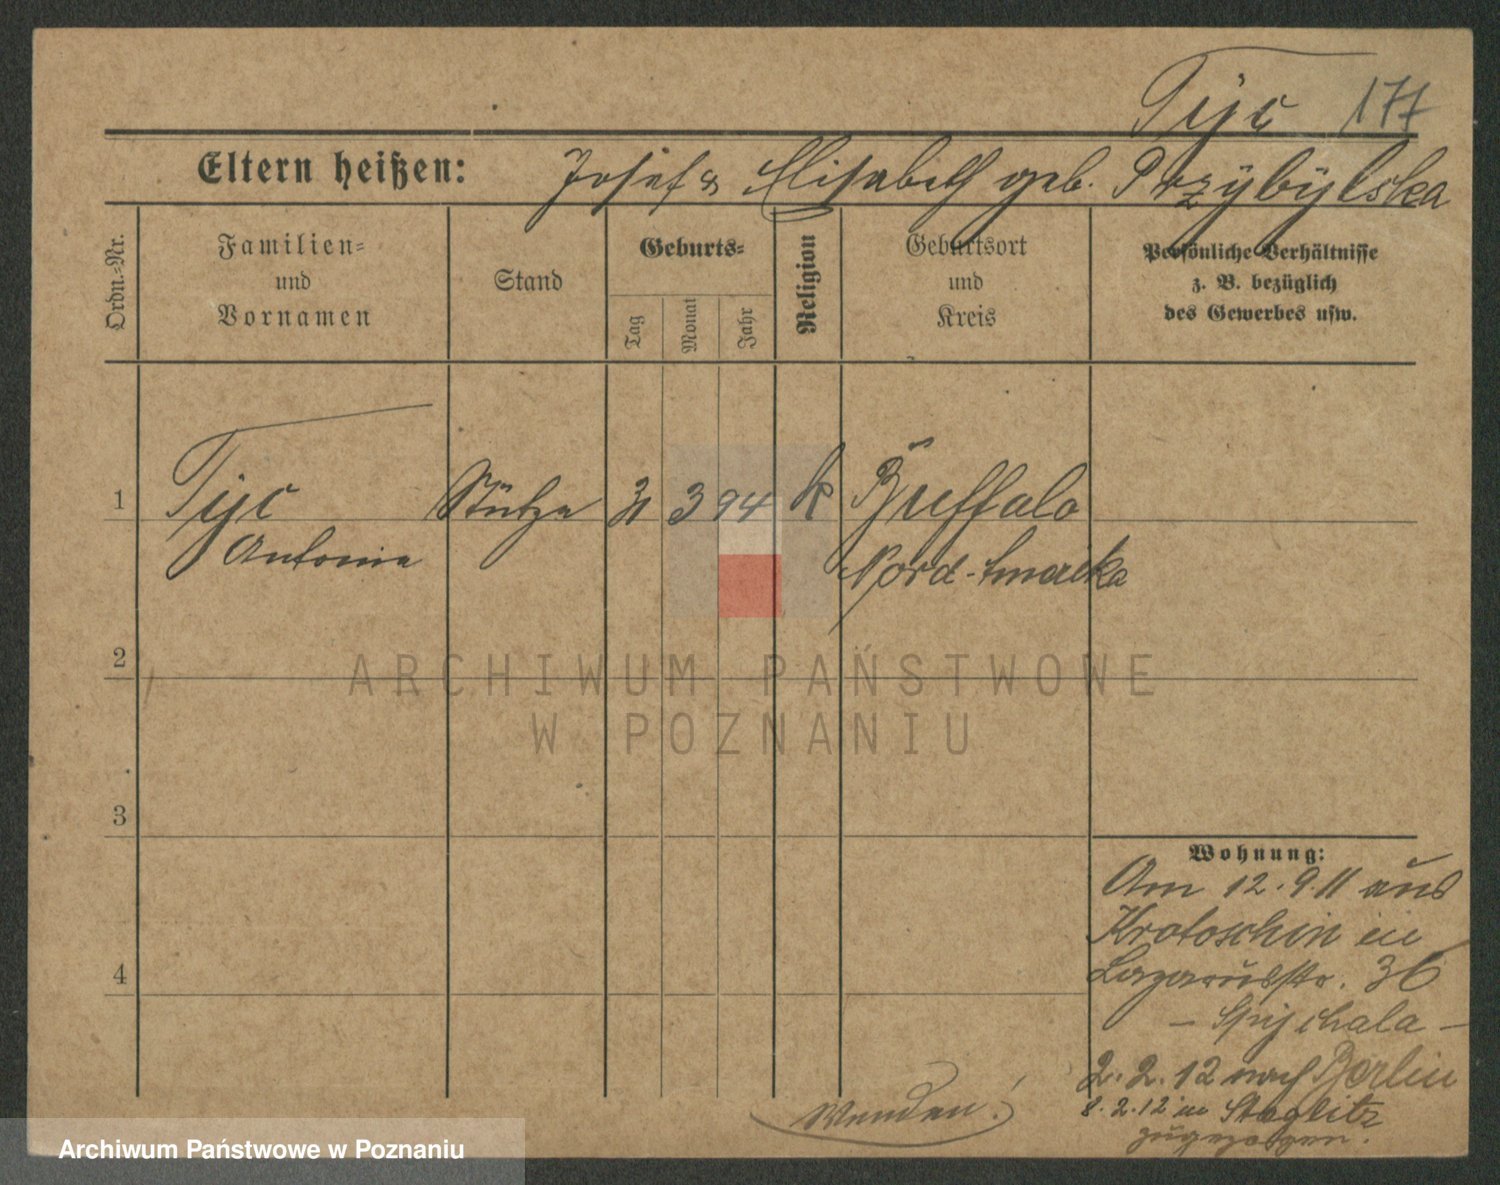 Tyc 177
Eltern heißen: Josef & Elisabeth geb. Przybylska
Ordn.-Nr.
Familien-
und
Vornamen
Stand
Geburts-
Tag
Monat
Jahr
Religion
Geburtsort
und
Kreis
Persönliche Verhältnisse
z. B. bezüglich
des Gewerbes usw.
1 Tyc Stütze 31 3 94 k Buffalo
Antonie Nord-Amerika
2
3
4
Wohnung:
Am 12.9.11 aus
Krotoschin in
Lazarusstr. 36
- Spychala -
2.2.12 nach Berlin
8.2.12 in Steglitz
zugezogen.
Wenden!
ARCHIWUM PAŃSTWOWE
W POZNANIU
Archiwum Państwowe w Poznaniu